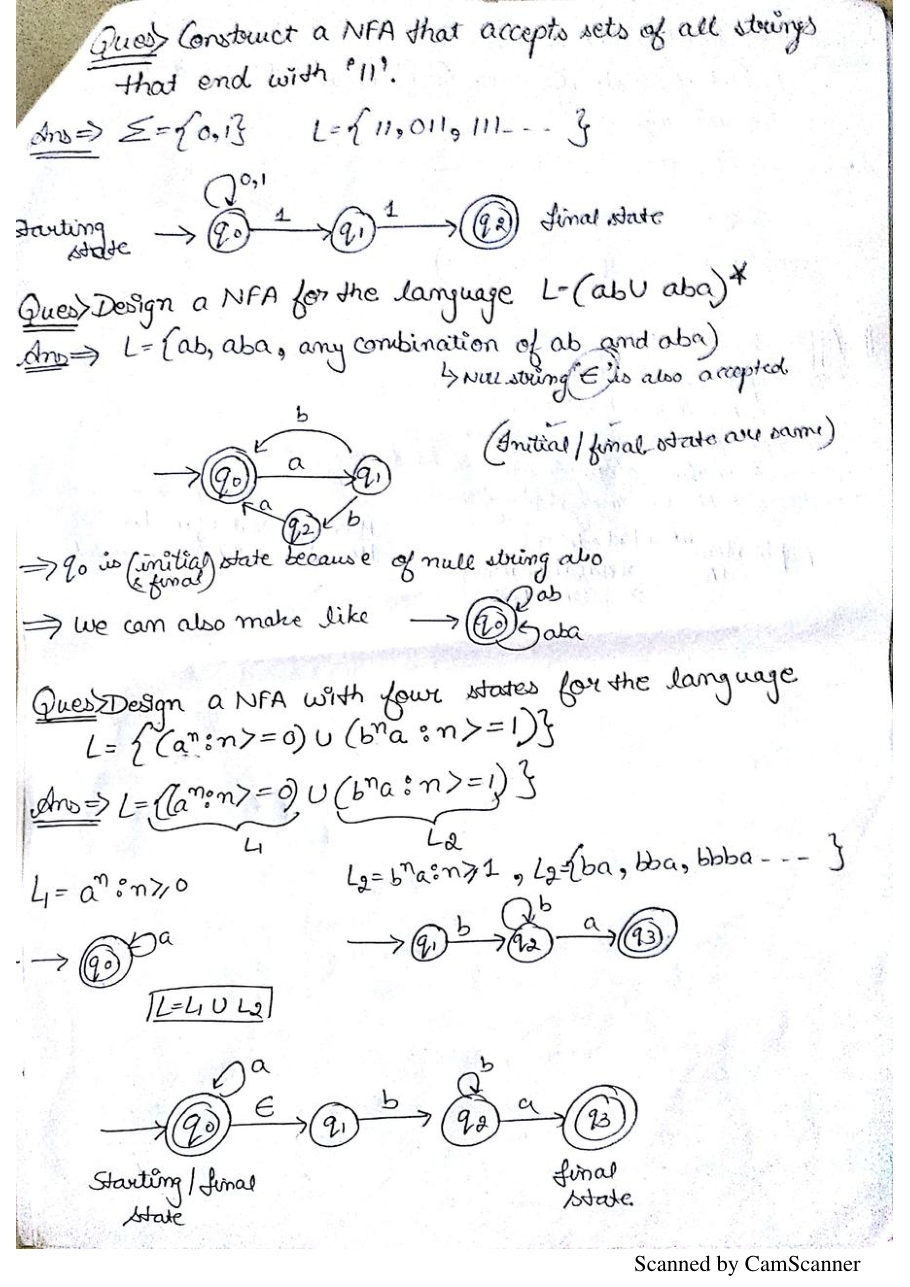 Ques> Construct a NFA that accepts sets of all strings
that end with '11'.
Ans => Σ={0,1} L={11,011,111---- }
0,1
Starting state → q0 1 q1 1 q2 final state
Ques> Design a NFA for the language L=(ab∪ aba)*
Ans => L={ab, aba, any combination of ab and aba)
↳ Null string '∈' is also accepted
(Initial / final state are same)
b
→ q0 a q1
a q2 b
=> q0 is (initial & final) state because of null string also
=> we can also make like → q0 ab
aba
Ques> Design a NFA with four states for the language
L= {(aⁿ:n>=0) ∪ (bⁿa :n>=1)}
Ans => L={(aⁿ:n>=0) ∪ (bⁿa:n>=1)}
L1 L2
L1= aⁿ:n≥0 L2=bⁿa:n≥1, L2={ba, bba, bbba---- }
→ q0 a → q1 b q2 b a q3
L=L1 ∪ L2
a b
q0 ∈ q1 b q2 a q3
Starting / final state final state
Scanned by CamScanner